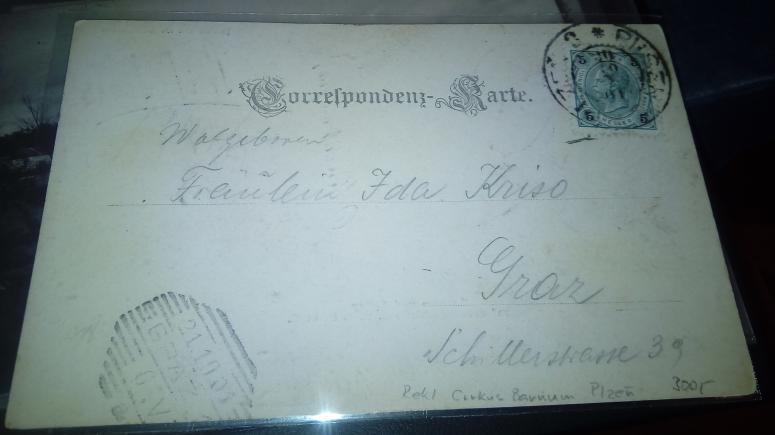 Correspondenz-Karte.
5 5
Wolgeboren
Fräulein Ida Kriso
Graz
Schillerstrasse 39
21.10.01
GRAZ
Rekl Cirkus Barnum Plzeň 300,-